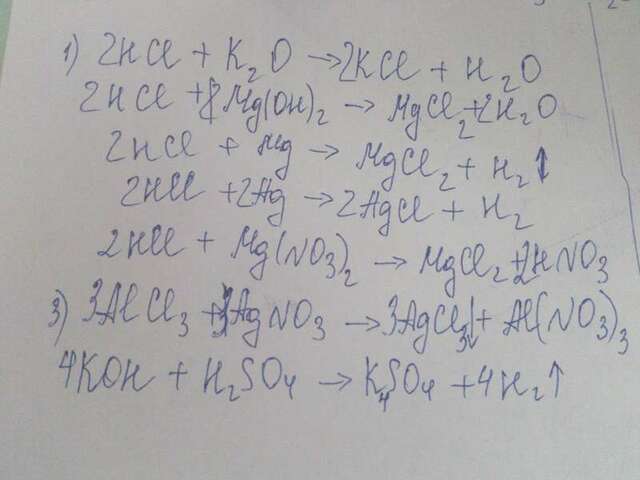 1) 2HCl + K₂O → 2KCl + H₂O
2HCl + Mg(OH)₂ → MgCl₂ + 2H₂O
2HCl + Mg → MgCl₂ + H₂↑
2HCl + 2Ag → 2AgCl + H₂
2HCl + Mg(NO₃)₂ → MgCl₂ + 2HNO₃
3) 3AlCl₃ + 3AgNO₃ → 3AgCl₃↓ + Al(NO₃)₃
4KOH + H₂SO₄ → K₄SO₄ + 4H₂↑